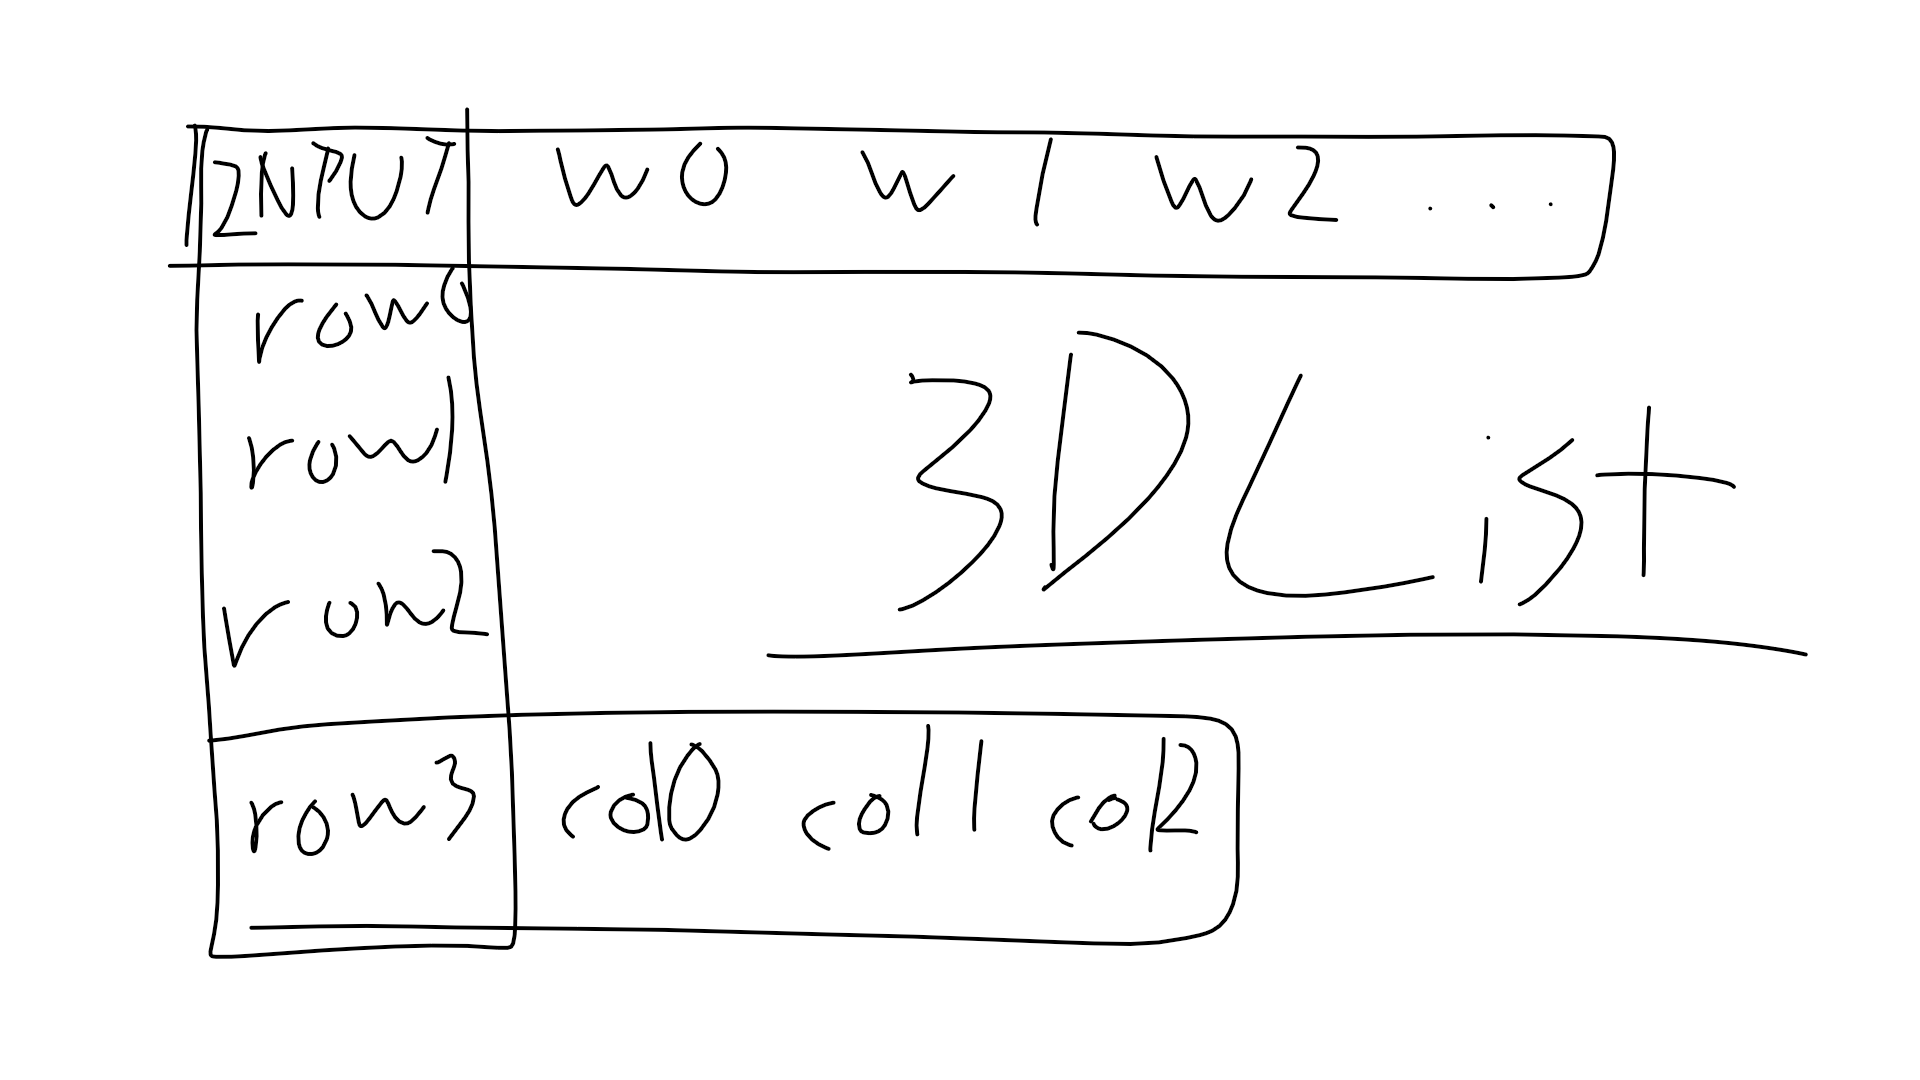 INPUT w0 w1 w2 ...
row0
row1
row2
3D List
row3 col0 col1 col2